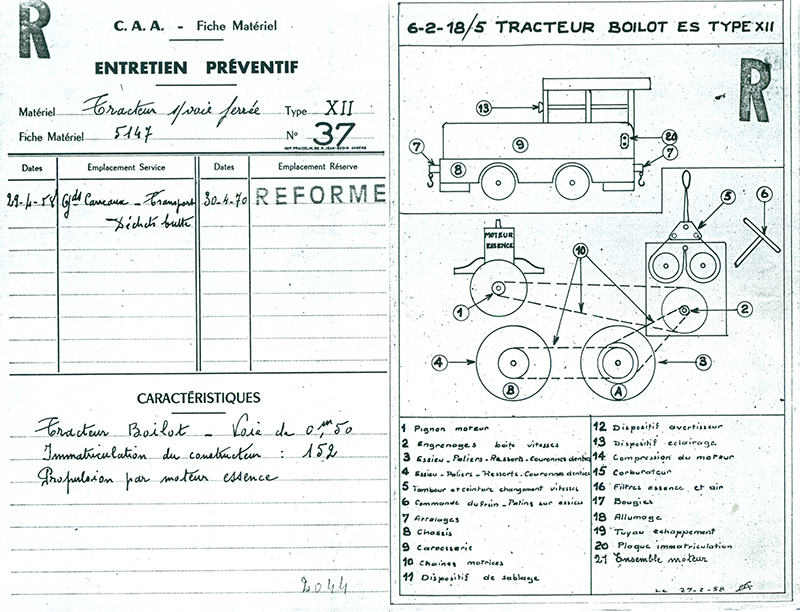 R
C. A. A. - Fiche Matériel
ENTRETIEN PRÉVENTIF
Matériel Tracteur s/voie ferrée Type XII
Fiche Matériel 5147 N° 37
Dates Emplacement Service Dates Emplacement Réserve
29-4-58 Gds Carreaux - Transport 30-4-70 REFORME
Déchets butte
CARACTÉRISTIQUES
Tracteur Boilot - Voie de 0,m50
Immatriculation du constructeur : 152
Propulsion par moteur essence
2044
6-2-18/5 TRACTEUR BOILOT ES TYPE XII
R
13
9
20
7
7
8
5
6
MOTEUR
ESSENCE
10
1
2
4
3
B
A
1 Pignon moteur
2 Engrenages boite vitesses
3 Essieu - Paliers - Ressorts - Couronnes dentées
4 Essieu - Paliers - Ressorts - Couronnes dentées
5 Tambour et ceinture changement vitesses
6 Commande du frein - Patins sur essieu
7 Attelages
8 Chassis
9 Carrosserie
10 Chaines motrices
11 Dispositif de sablage
12 Dispositif avertisseur
13 Dispositif eclairage
14 Compression du moteur
15 Carburateur
16 Filtres essence et air
17 Bougies
18 Allumage
19 Tuyau echappement
20 Plaque immatriculation
21 Ensemble moteur
Le 27-2-58